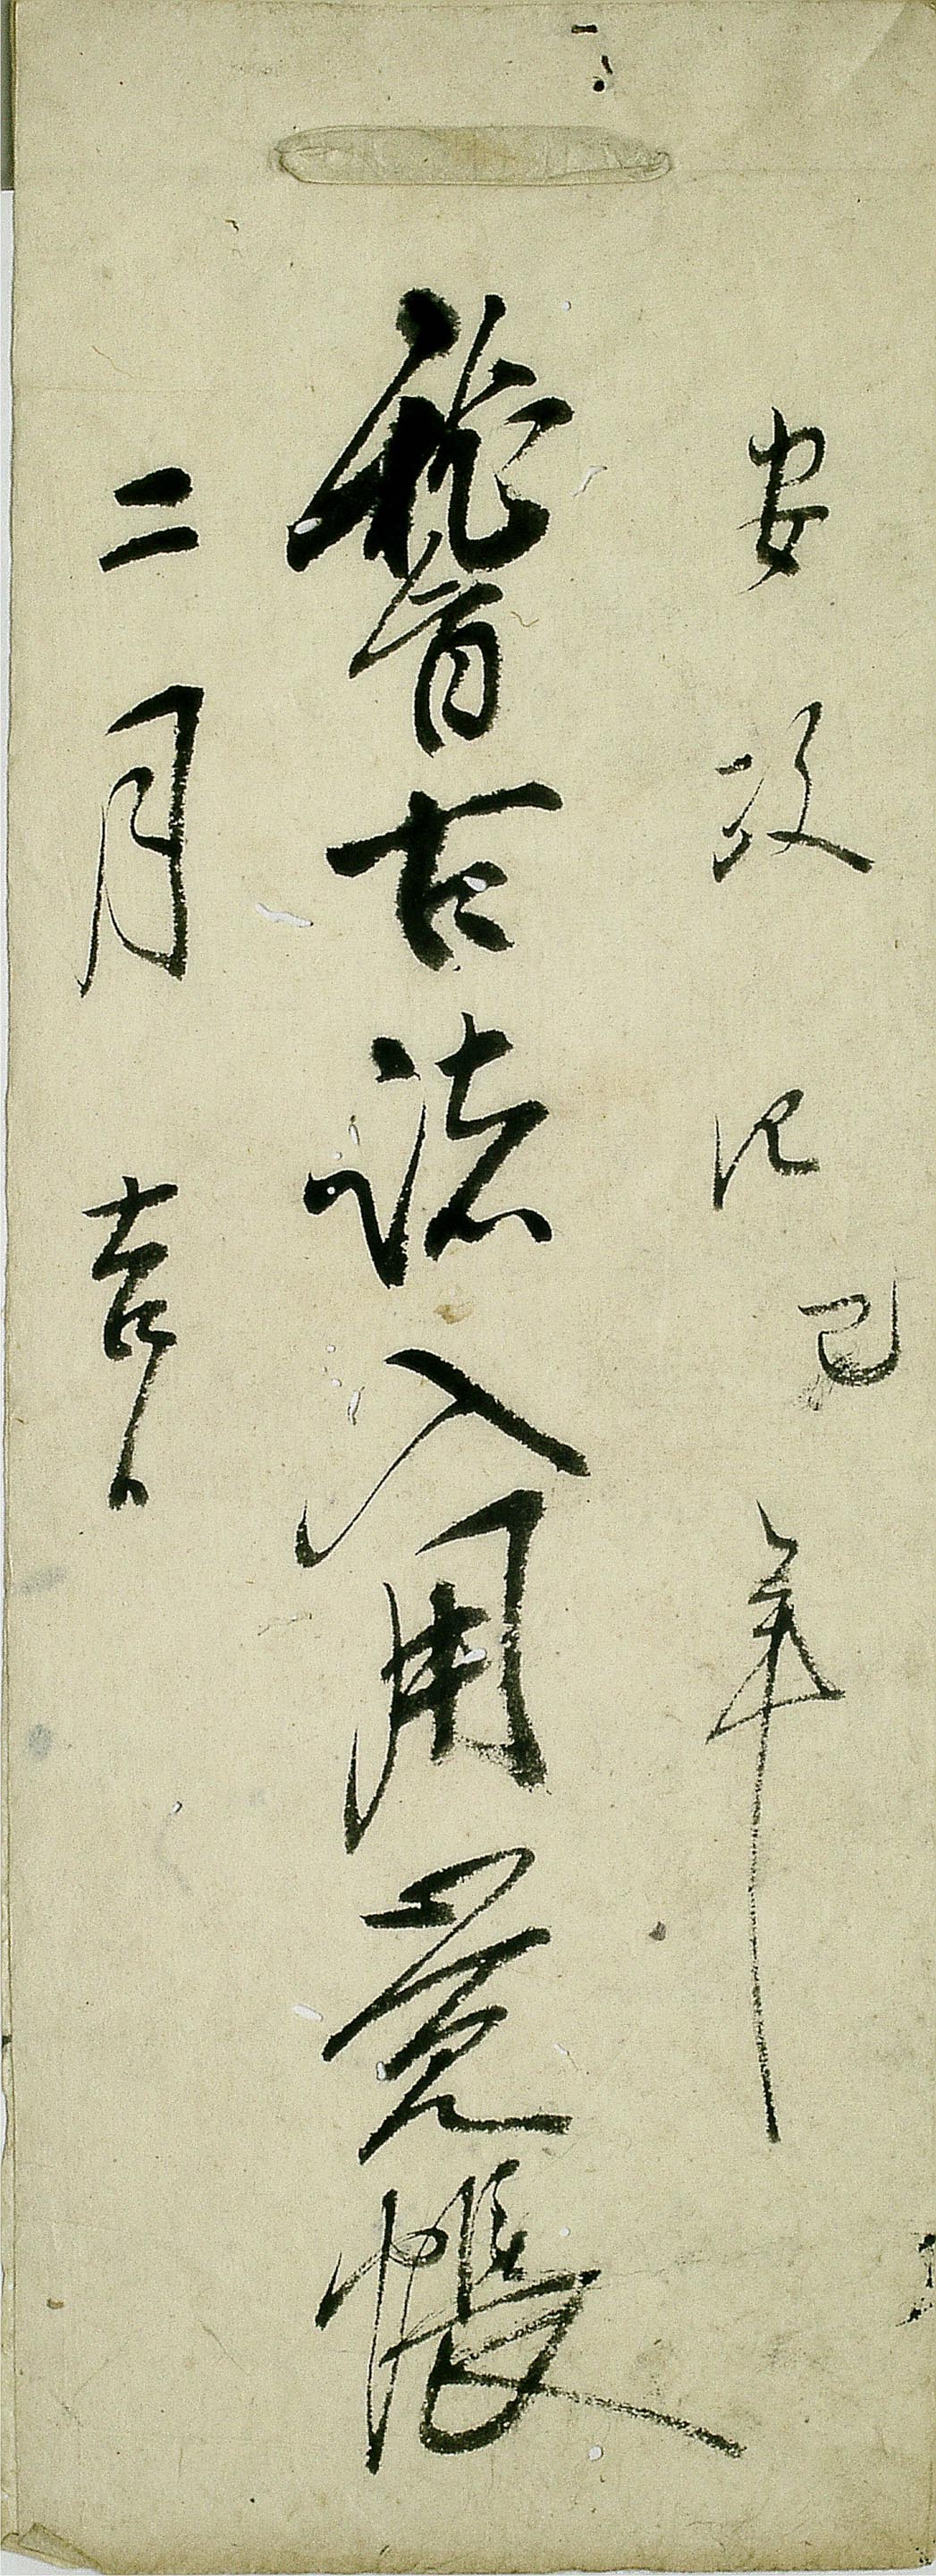 安政四巳年
稽古諸入用覚帳
二月吉日